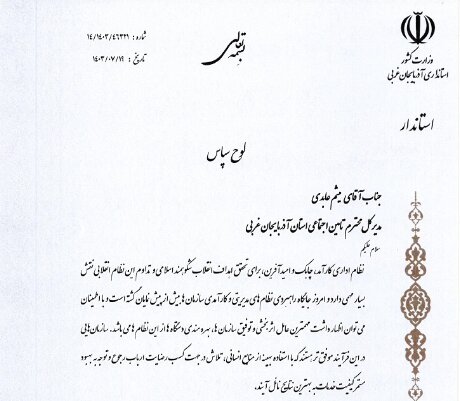 بسمه تعالی
شماره : ۱۴/۱۴۰۳/۴۶۳۲۱
تاریخ : ۱۴۰۳/۰۷/۱۹
وزارت کشور
استانداری آذربایجان غربی
استاندار
لوح سپاس
جناب آقای میثم عابدی
مدیرکل محترم تامین اجتماعی استان آذربایجان غربی
سلام علیکم
نظام اداری کارآمد، چابک و امیدآفرین، برای تحقق اهداف انقلاب شکوهمند اسلامی و تداوم این نظام انقلابی نقش
بسیار مهمی دارد و امروز جایگاه راهبردی نظام های مدیریتی و کارآمدی سازمان ها بیش از پیش نمایان گشته است و با اطمینان
می توان اظهار داشت مهمترین عامل اثربخشی و توفیق سازمان ها، بهره مندی دستگاه ها از این نظام ها می باشد. سازمان هایی
در این فرآیند موفق تر هستند که با استفاده بهینه از منابع انسانی، تلاش در جهت کسب رضایت ارباب رجوع و توجه به بهبود
مستمر کیفیت خدمات به بهترین نتایج نائل آیند.